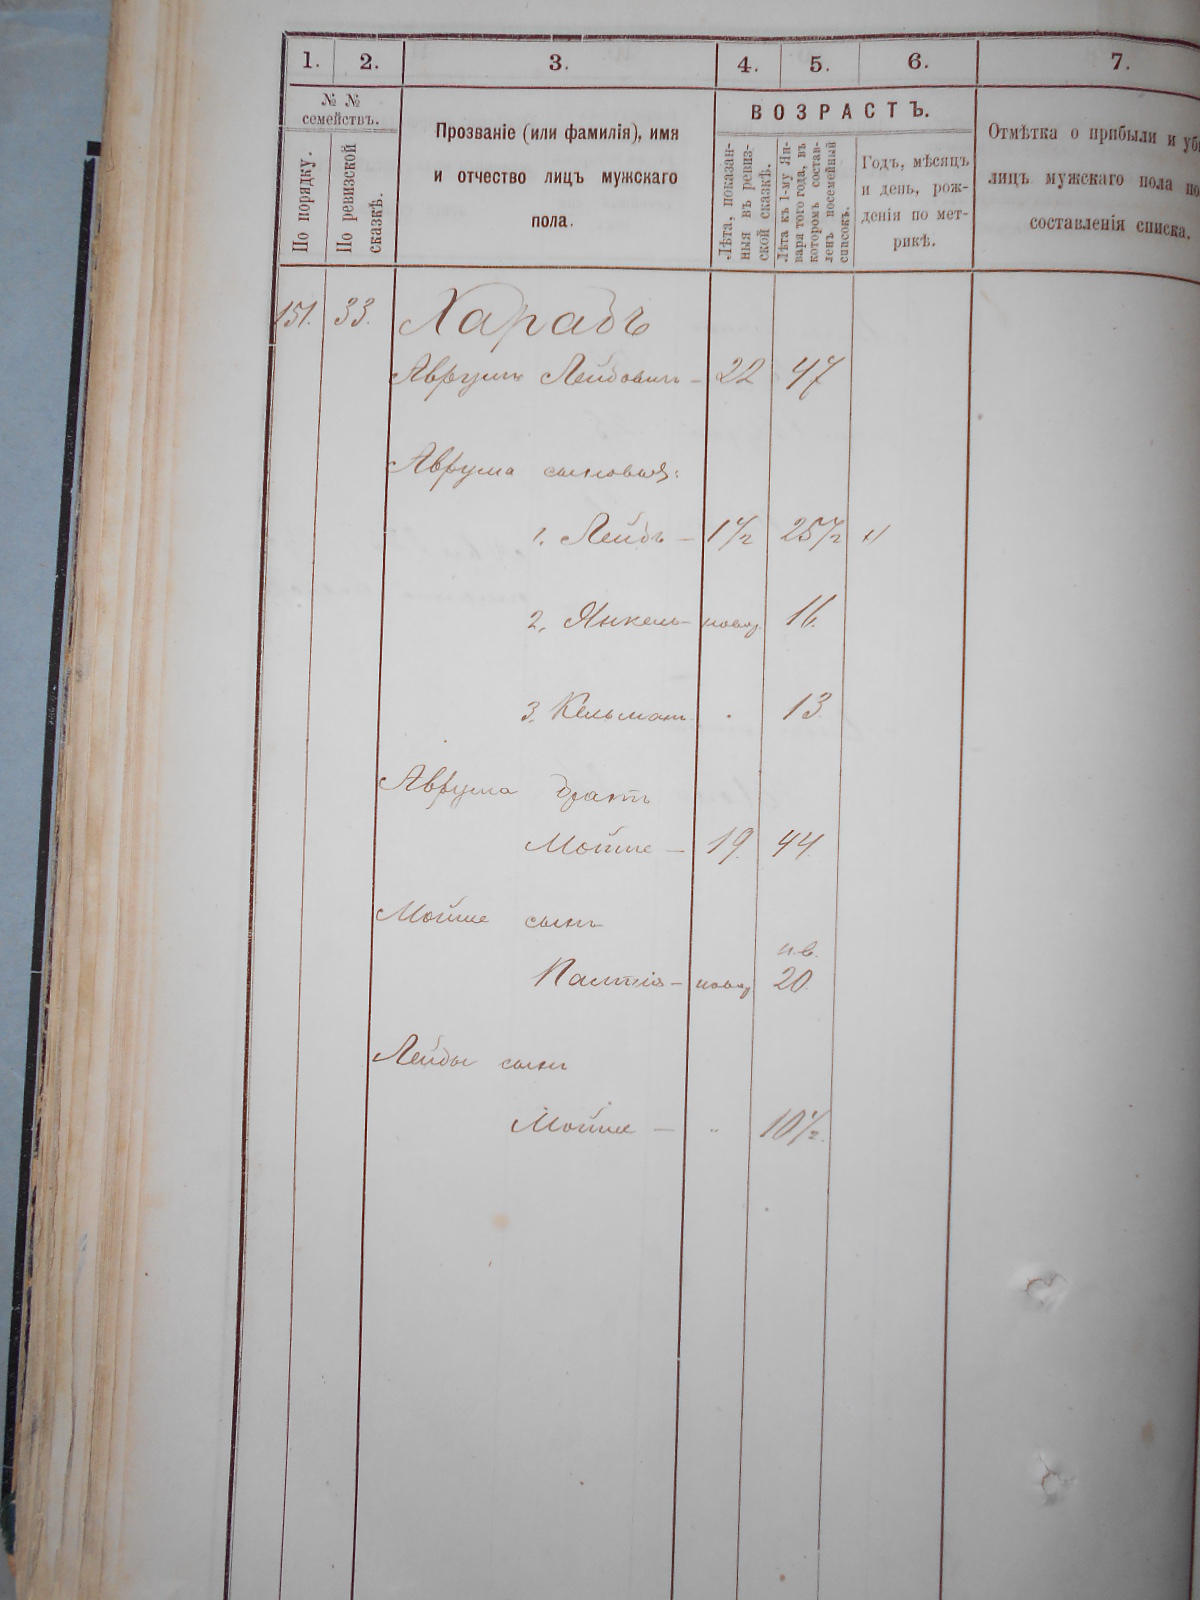 1. 2. 3. 4. 5. 6. 7.
№ № семействъ.
По порядку.
По ревизской сказкѣ.
Прозваніе (или фамилія), имя
и отчество лицъ мужскаго
пола.
ВОЗРАСТЪ.
Лѣта, показан-
ныя въ ревиз-
ской сказкѣ.
Лѣта къ 1-му Ян-
варя того года, въ
которомъ состав-
ленъ посемейный
списокъ.
Годъ, мѣсяцъ
и день, рож-
денія по мет-
рикѣ.
Отмѣтка о прибыли и уб
лицъ мужскаго пола по
составленія списка.
151. 33. Харабъ
Аврумъ Лейбовичъ — 22 47
Аврума сыновья:
1. Лейбъ — 1 1/2 25 1/2
2. Янкель — новор. 16.
3. Кельманъ. 13
Аврума братъ
Мойше — 19. 44.
Мойше сынъ
н.в.
Палтіо — новор 20.
Лейбы сынъ
Мойше — " 10 1/2.